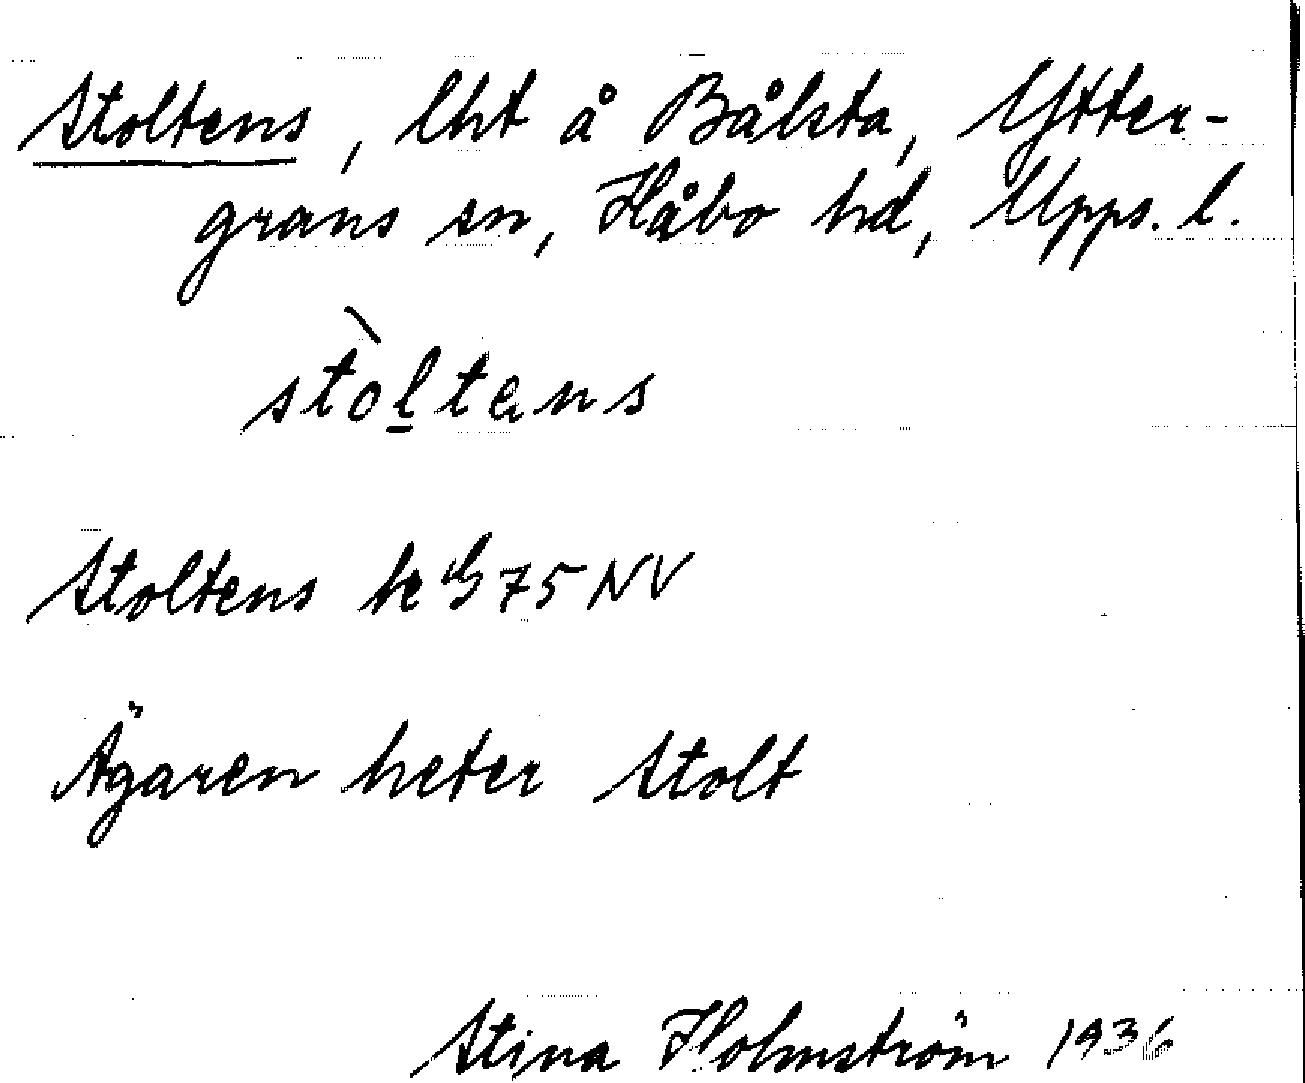 Stoltens, lht å Bålsta, Ytter-
grans sn, Håbo hd, Upps. l.
stòl̲tens
Stoltens 75 NV
Ägaren heter Stolt
Stina Holmström 1936